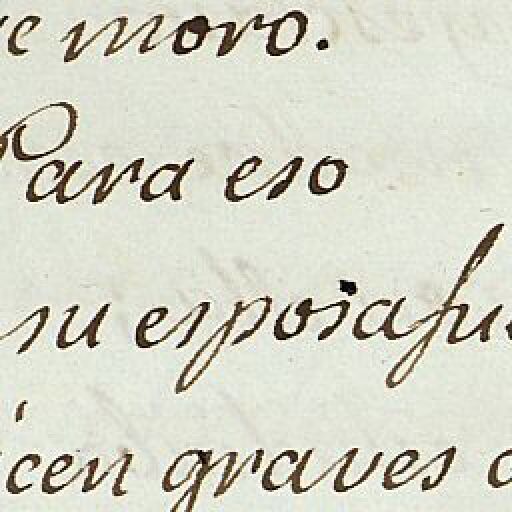 moro.
Para eso
su esposa fue
graves